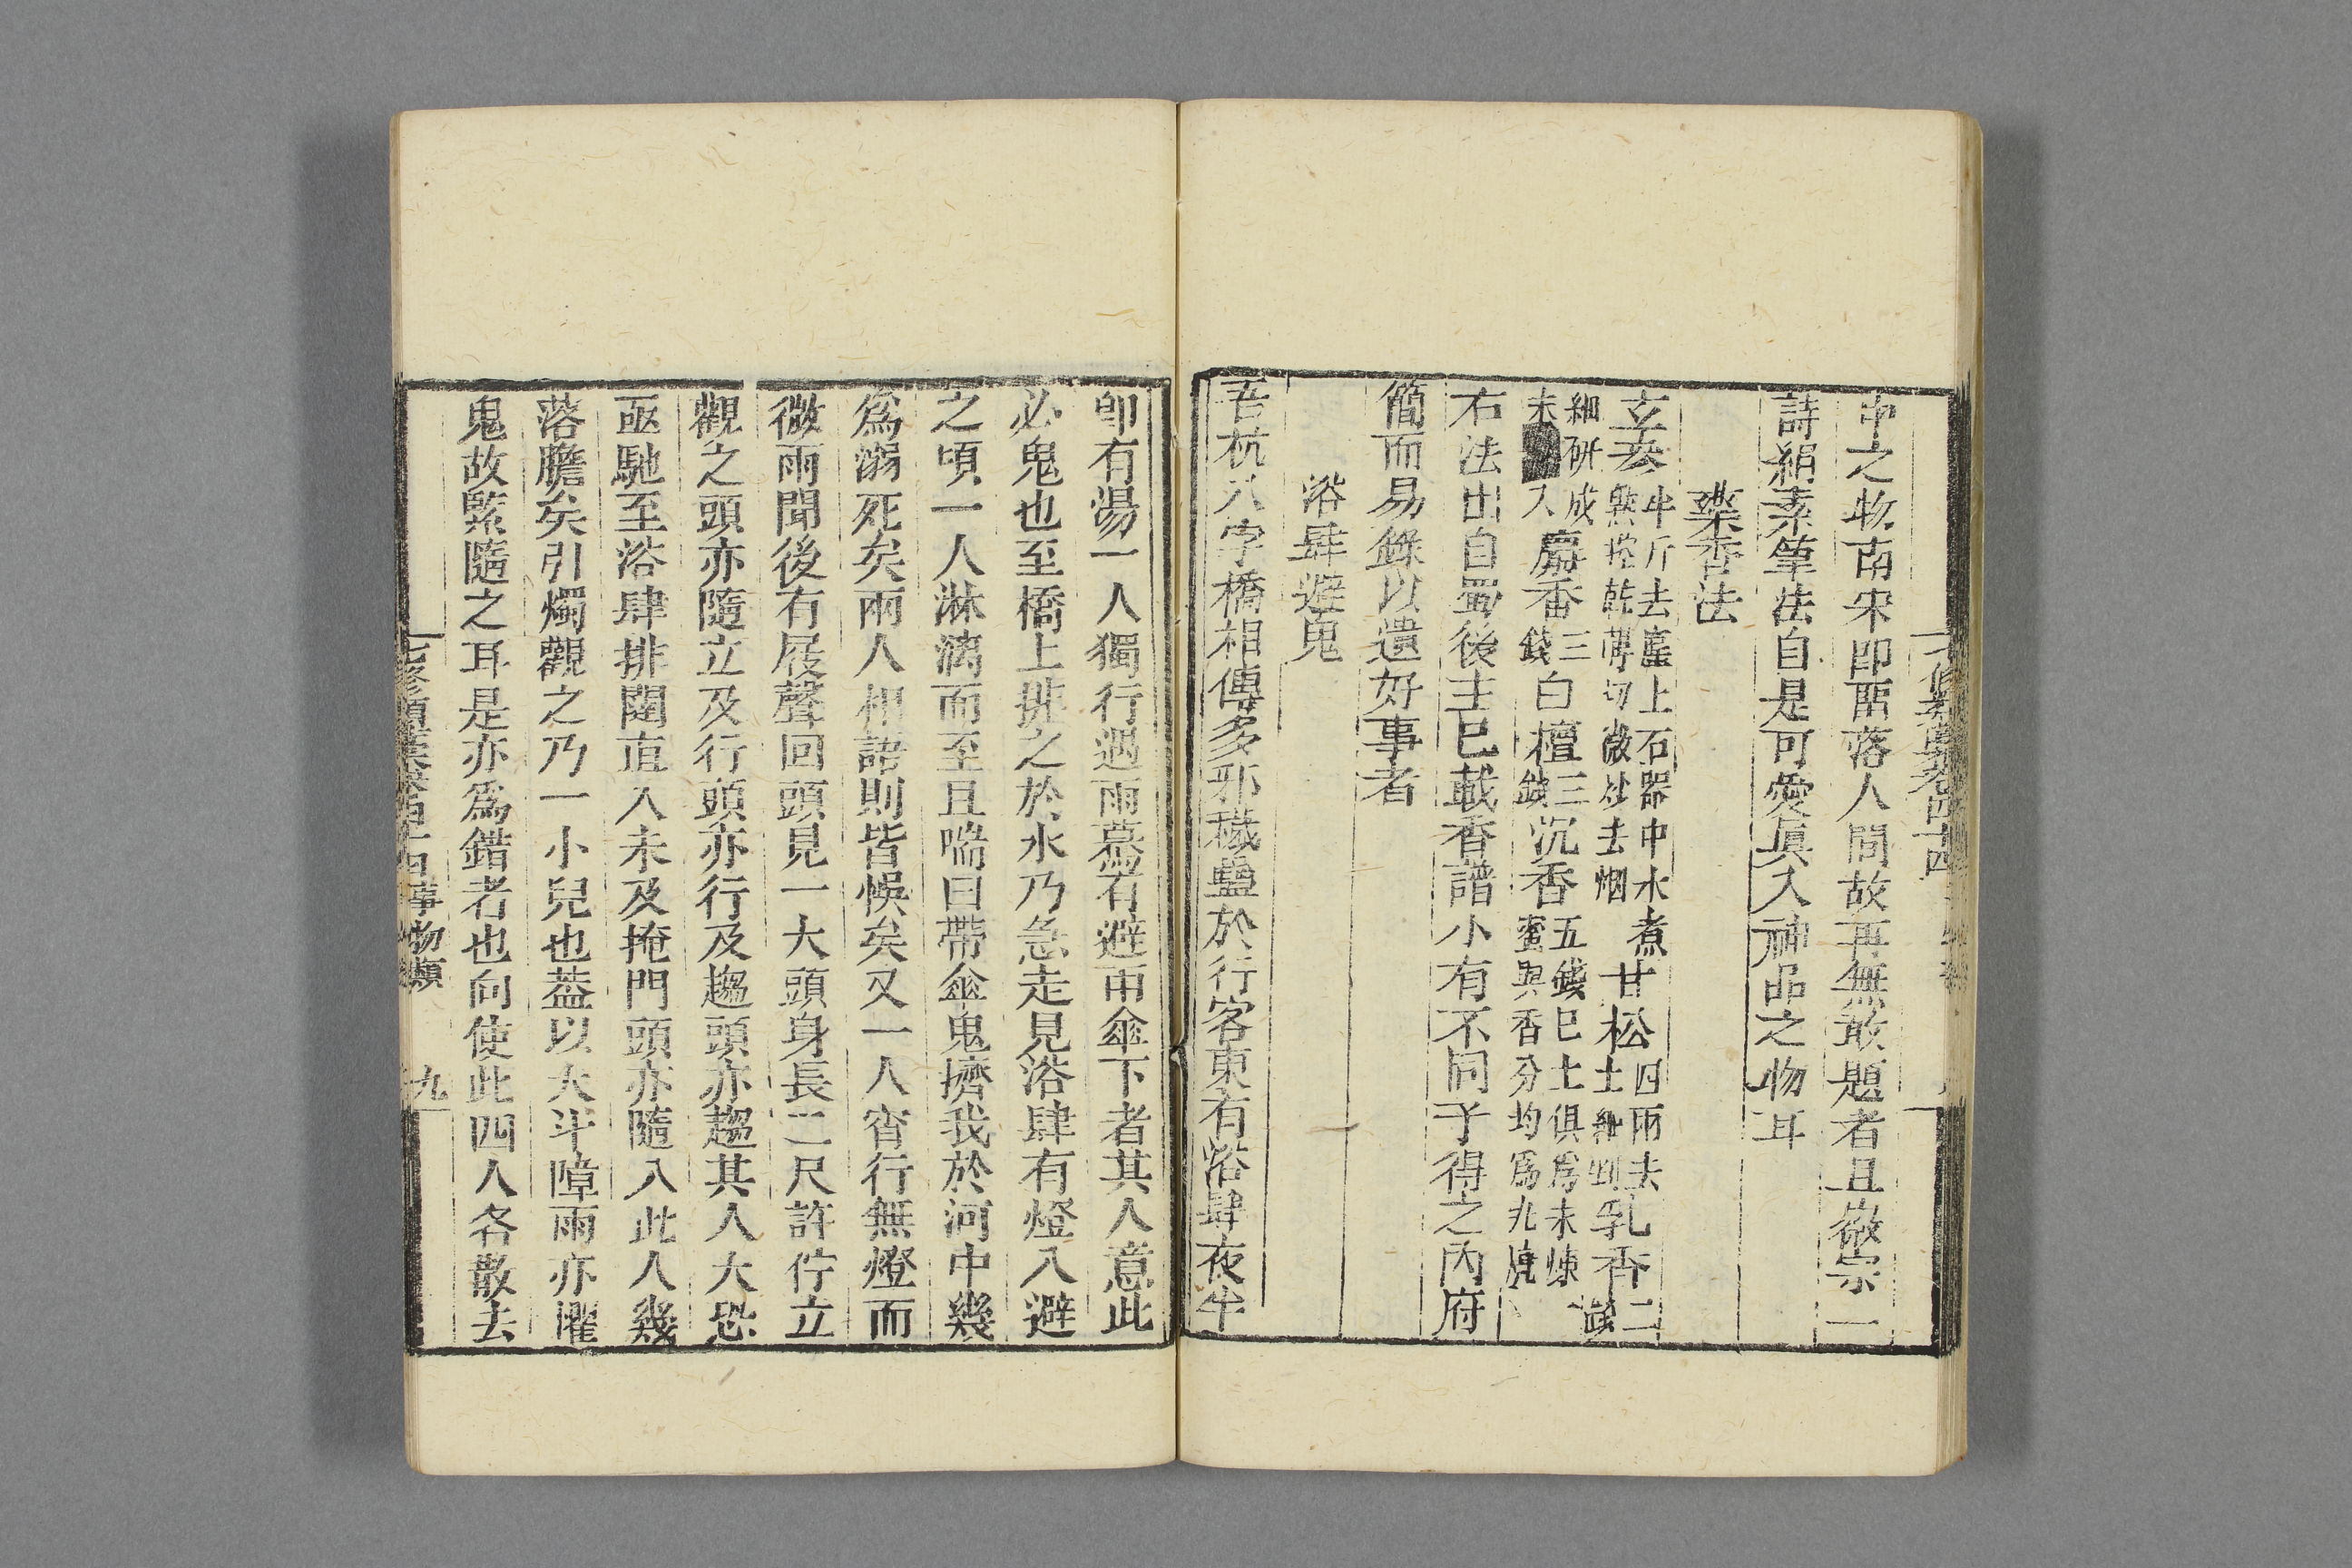 中之物南宋即酩落人間故再無敢題者且徽宗一
詩絹素筆法自是可愛眞入神品之物耳
藥香法
玄叅半斤去塵上石器中水煮
熟控乾薄切微炒去烟甘松四兩去
土細剉乳香二
錢
細研成
末 入麝香三
錢白檀三
錢沉香五錢巳上俱爲末煉
蜜與香分均爲丸燒
右法出自蜀後主巳載香譜小有不同予得之内府
簡而易錄以遺好事者
浴肆避鬼
吾杭八字橋相傳多邪穢蠱於行客東有浴肆夜半
即有湯一人獨行遇雨驀有避雨傘下者其人意此
必鬼也至橋上排之於水乃急走見浴肆有燈入避
之頃一人淋漓而至且喘曰帶傘鬼擠我於河中幾
爲溺死矣兩人相語則皆悞矣又一人宵行無燈而
微雨聞後有屐聲回頭見一大頭身長二尺許佇立
觀之頭亦隨立及行頭亦行及趨頭亦趨其人大恐
亟馳至浴肆排闥直入未及掩門頭亦隨入此人幾
落膽矣引燭觀之乃一小兒也葢以大斗障雨亦懼
鬼故緊隨之耳是亦爲錯者也向使此四人各散去
七修類藁卷四十四事物類 九